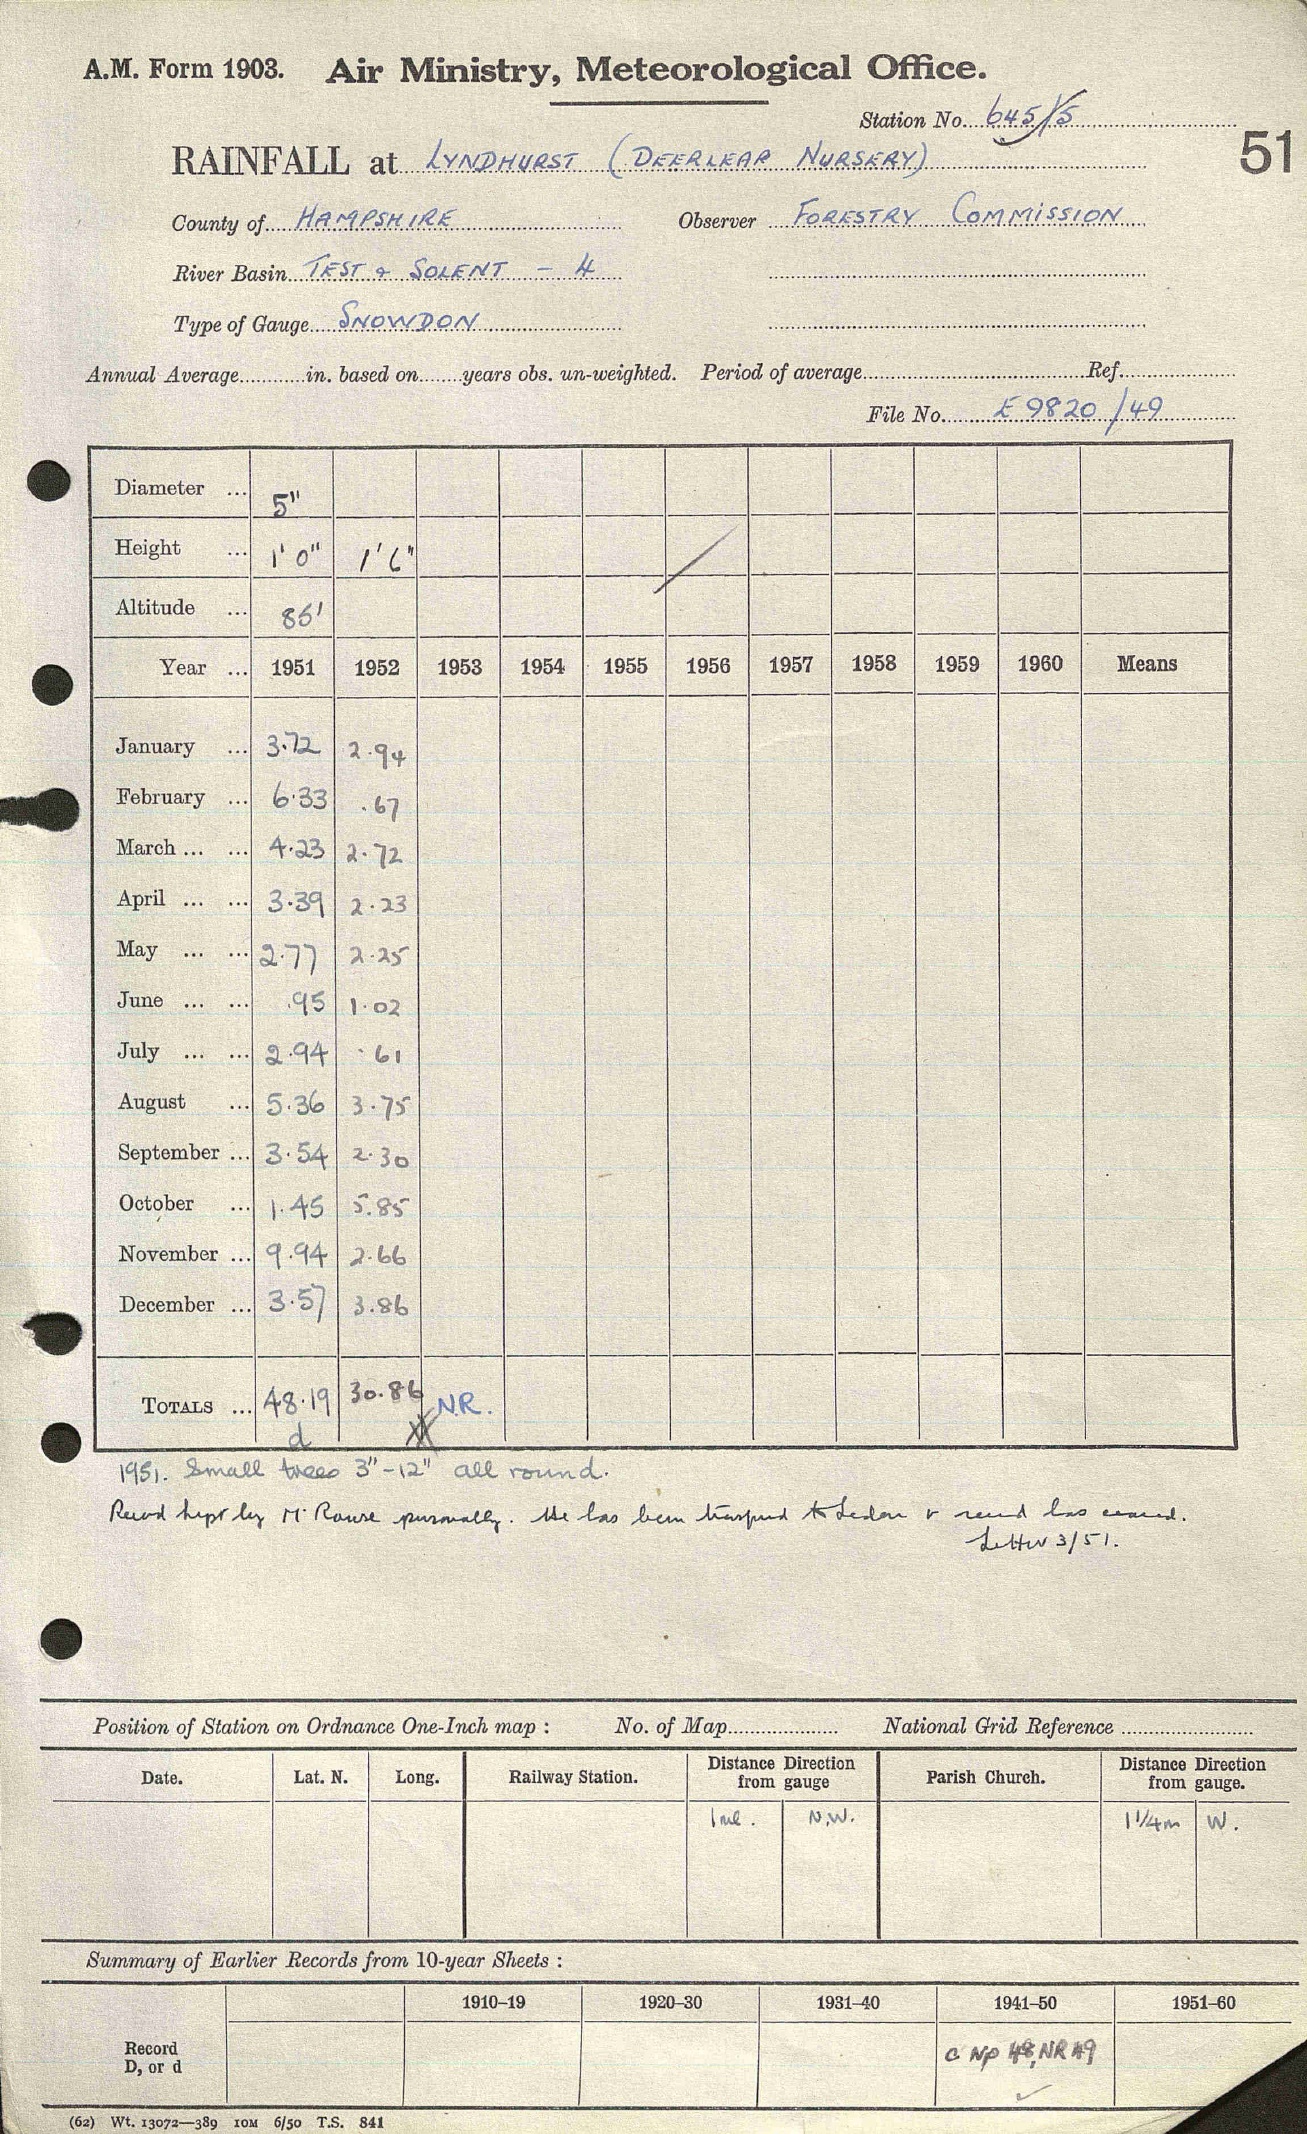 A.M. Form 1903. Air Ministry, Meteorological Office.
Station No. 645/5
51
RAINFALL at LYNDHURST (DEERLEAP NURSERY)
County of HAMPSHIRE Observer FORESTRY COMMISSION
River Basin TEST & SOLENT - 4
Type of Gauge SNOWDON
Annual Average............in. based on........years obs. un-weighted. Period of average............Ref............
File No. E 9820/49
Diameter ... 5"
Height ... 1' 0" 1' 6"
Altitude ... 85'
Year ... 1951 1952 1953 1954 1955 1956 1957 1958 1959 1960 Means
January ... 3.72 2.94
February ... 6.33 .67
March ... ... 4.23 2.72
April ... ... 3.39 2.23
May ... ... 2.77 2.25
June ... ... .95 1.02
July ... ... 2.94 .61
August ... 5.36 3.75
September ... 3.54 2.30
October ... 1.45 5.85
November ... 9.94 2.66
December ... 3.57 3.86
TOTALS ... 48.19 30.86 N.R.
d
1951. Small trees 3"-12" all round.
Record kept by Mr Rouse personally. He has been & record has ceased.
Letter 3/51.
Position of Station on Ordnance One-Inch map : No. of Map............ National Grid Reference ............
Date. Lat. N. Long. Railway Station. Distance Direction from gauge Parish Church. Distance Direction from gauge.
1 ml. N.W. 1 1/4 m W.
Summary of Earlier Records from 10-year Sheets :
1910–19 1920–30 1931–40 1941–50 1951–60
Record
D, or d
c Np 48, NR 49
(62) Wt. 13072—389 10M 6/50 T.S. 841